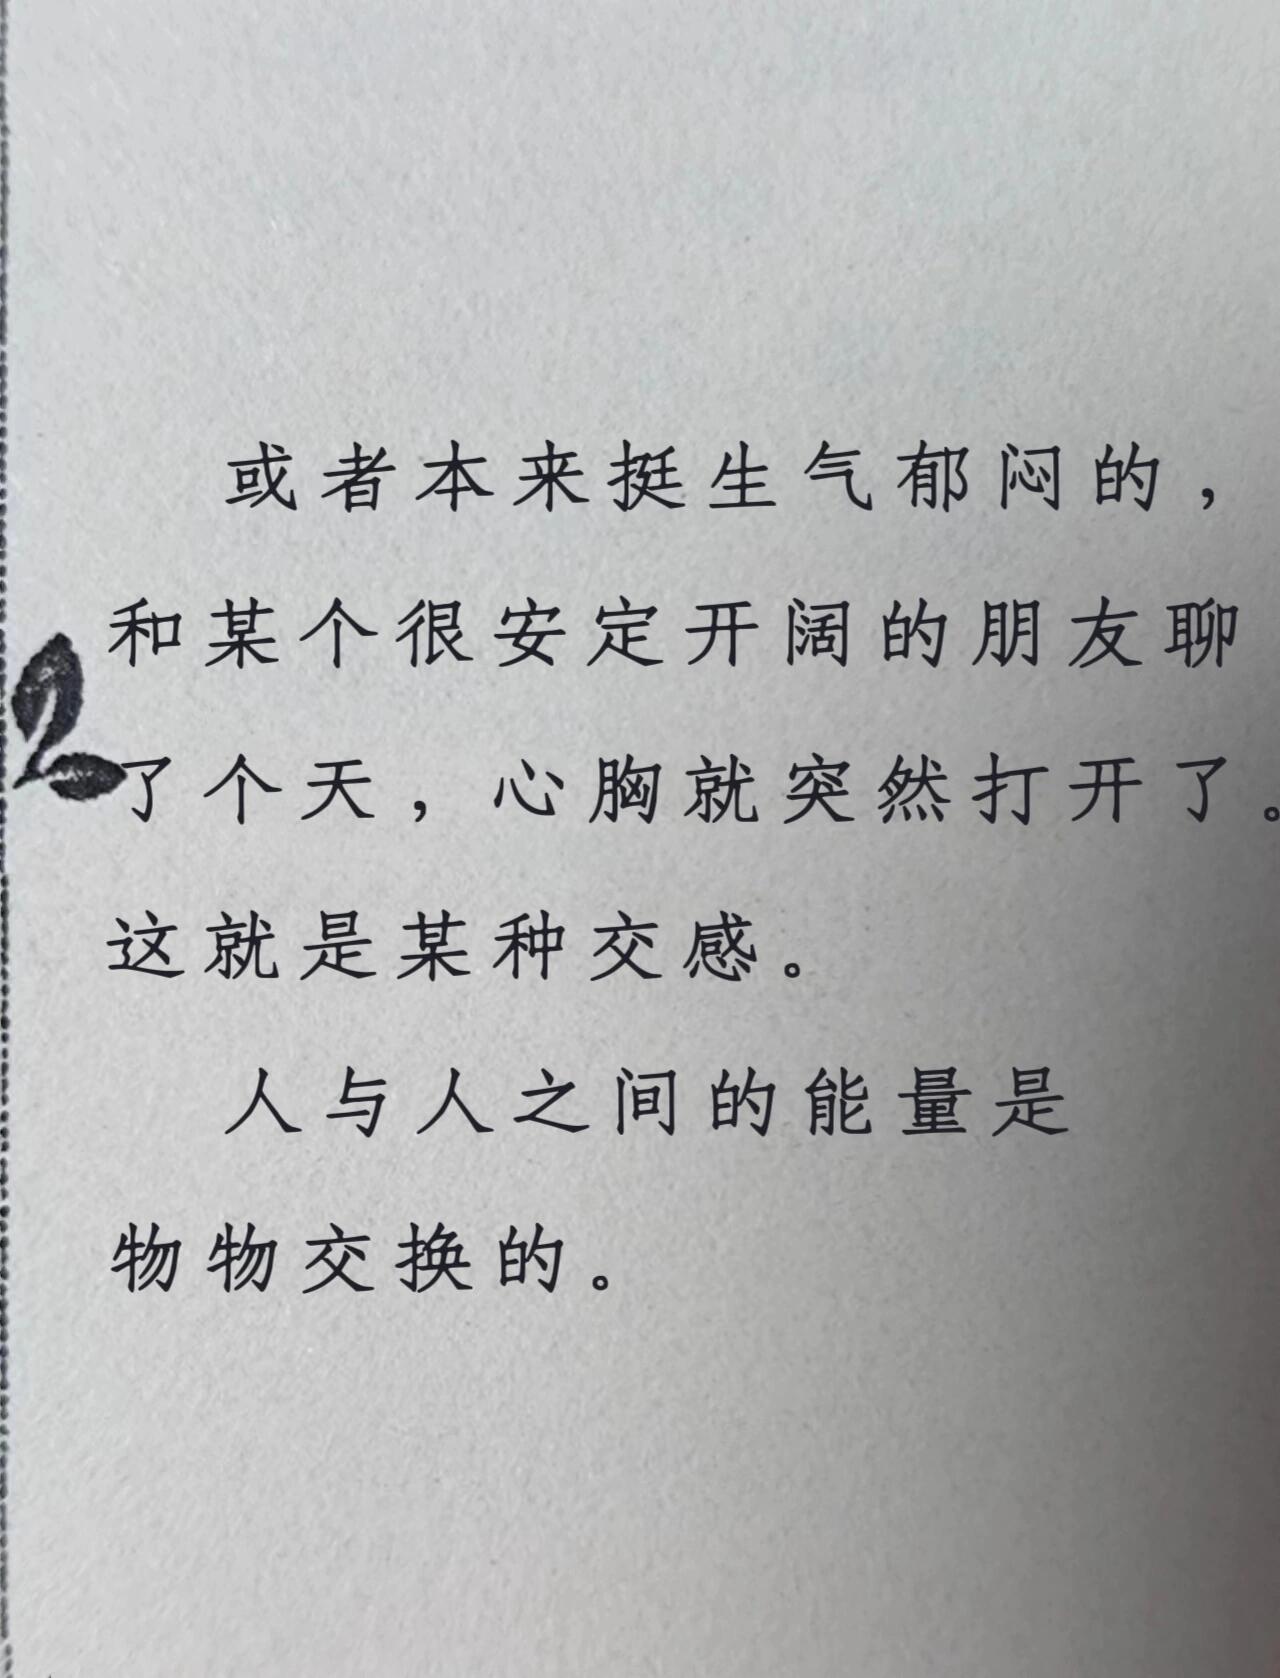 或者本来挺生气郁闷的，
和某个很安定开阔的朋友聊
了个天，心胸就突然打开了。
这就是某种交感。
人与人之间的能量是
物物交换的。